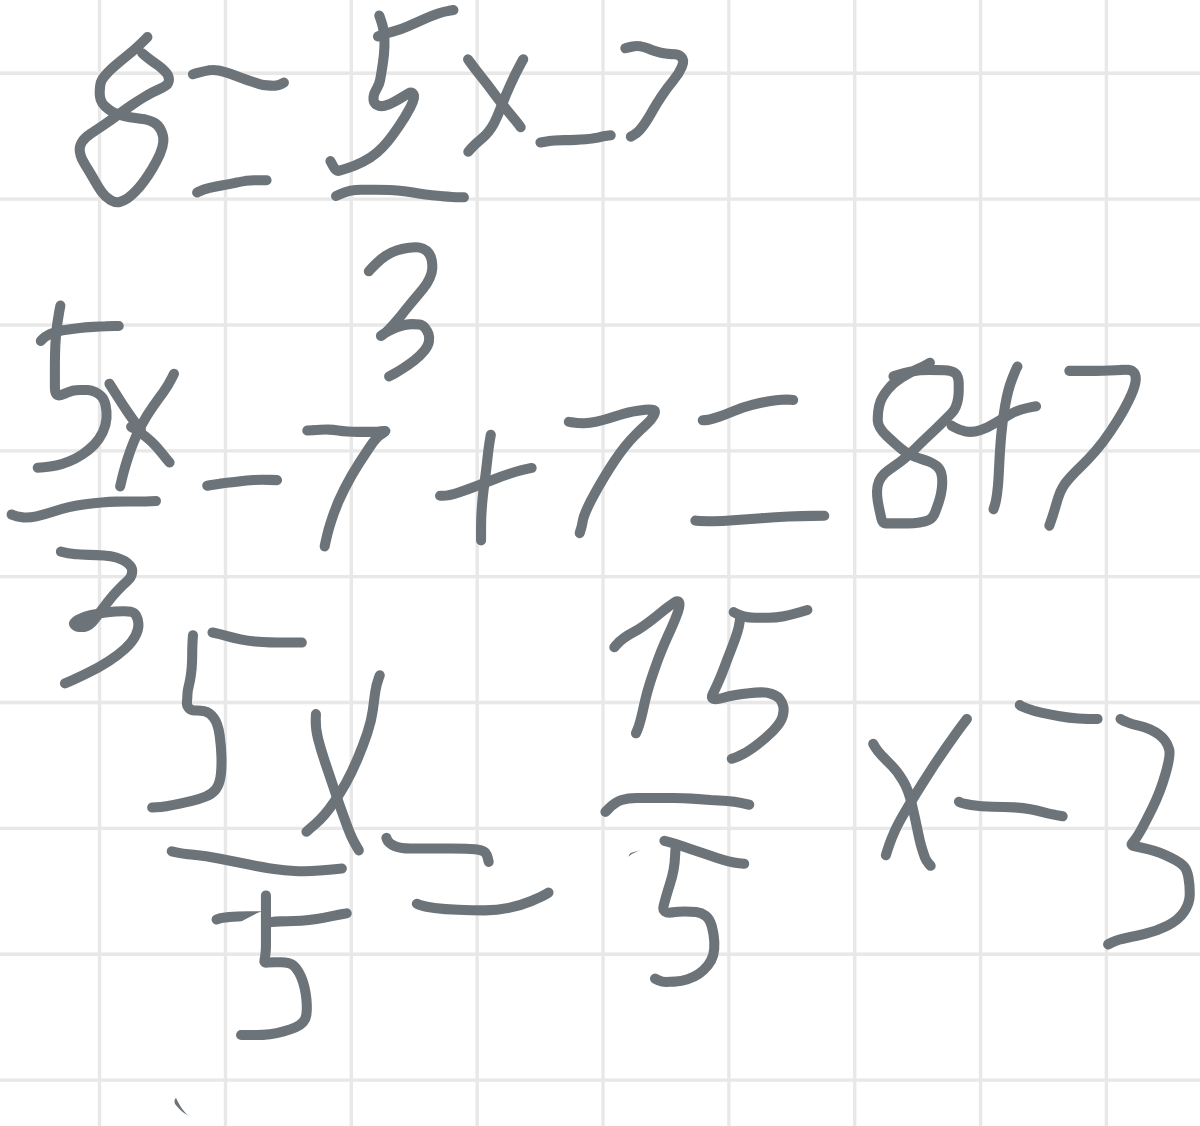 8 = 5x/3 - 7
5x/3 - 7 + 7 = 8 + 7
5x/5 = 15/5 x = 3